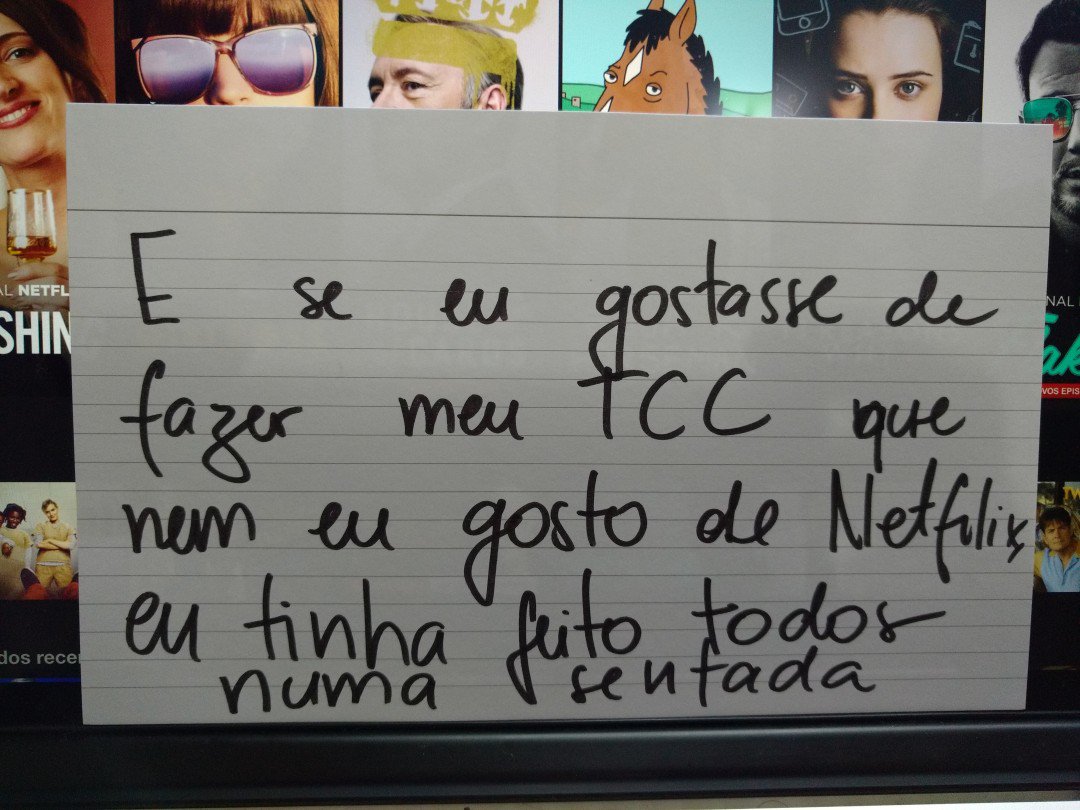 AL NETFL
SHIN
NAL
ak
VOS EPIS
E se eu gostasse de
fazer meu TCC que
nem eu gosto de Netflix,
eu tinha feito todos
numa sentada
dos recen